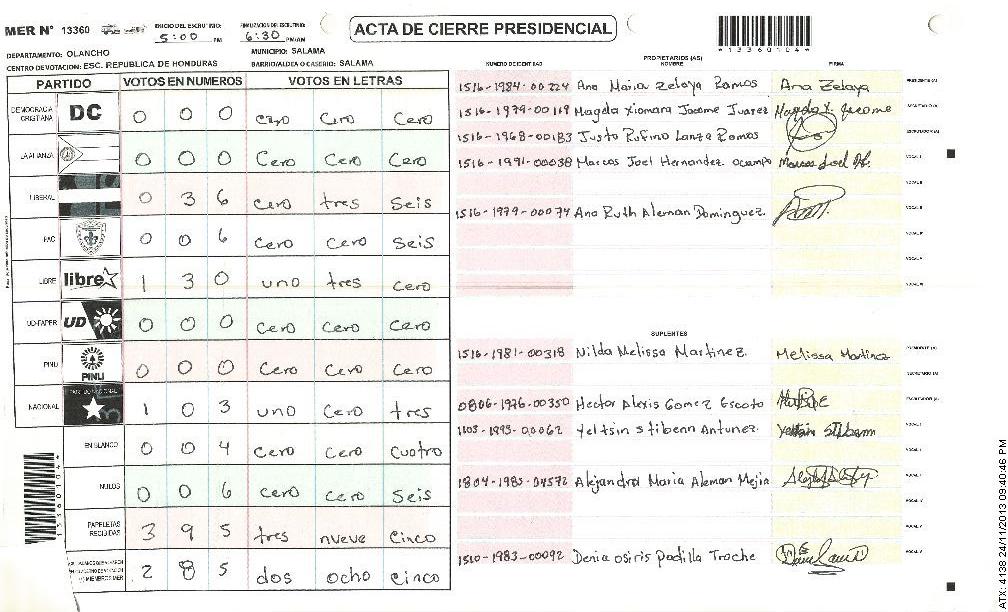 MER Nº 13360
INICIO DEL ESCRUTINIO:
5:00 PM
FINALIZACION DEL ESCRUTINIO:
6:30 PM/AM
ACTA DE CIERRE PRESIDENCIAL
13360104
DEPARTAMENTO: OLANCHO
MUNICIPIO: SALAMA
CENTRO DE VOTACION: ESC. REPUBLICA DE HONDURAS
BARRIO/ALDEA O CASERIO: SALAMA
PARTIDO VOTOS EN NUMEROS VOTOS EN LETRAS
DEMOCRACIA CRISTIANA DC 0 0 0 Cero Cero Cero
LA ALIANZA 0 0 0 Cero Cero Cero
LIBERAL 0 3 6 Cero tres Seis
PAC 0 0 6 Cero Cero Seis
LIBRE libre 1 3 0 uno tres Cero
UD-FAPER UD 0 0 0 Cero Cero Cero
PINU PINU 0 0 0 Cero Cero Cero
NACIONAL 1 0 3 uno Cero tres
EN BLANCO 0 0 4 Cero Cero Cuatro
NULOS 0 0 6 Cero Cero Seis
PAPELETAS RECIBIDAS 3 9 5 tres nueve Cinco
MIEMBROS MER 2 8 5 dos ocho Cinco
13360104
PROPIETARIOS (AS)
NUMERO DE IDENTIDAD NOMBRE FIRMA
1516-1984-00224 Ana Maria Zelaya Ramos Ana Zelaya PRESIDENTE (A)
1516-1979-00119 Magda Xiomara Jacome Juarez Magda X. Jacome SECRETARIO (A)
1516-1968-00183 Justo Rufino Lanza Ramos ESCRUTADOR (A)
1516-1991-00038 Marcos Joel Hernandez Ocampo VOCAL I
VOCAL II
1516-1979-00074 Ana Ruth Aleman Dominguez. VOCAL III
VOCAL IV
VOCAL V
VOCAL VI
SUPLENTES
1516-1981-00318 Nilda Melissa Martinez. Melissa Martinez PRESIDENTE (A)
SECRETARIO (A)
0806-1976-00350 Hector Alexis Gomez Escoto ESCRUTADOR (A)
1103-1993-00062 Yeltsin Stibenn Antunez. VOCAL I
VOCAL II
1804-1985-04572 Alejandra Maria Aleman Mejia VOCAL III
VOCAL IV
VOCAL V
1510-1983-00092 Denia Osiris Padilla Troche
ATX: 4138 24/11/2013 09:40:46 PM